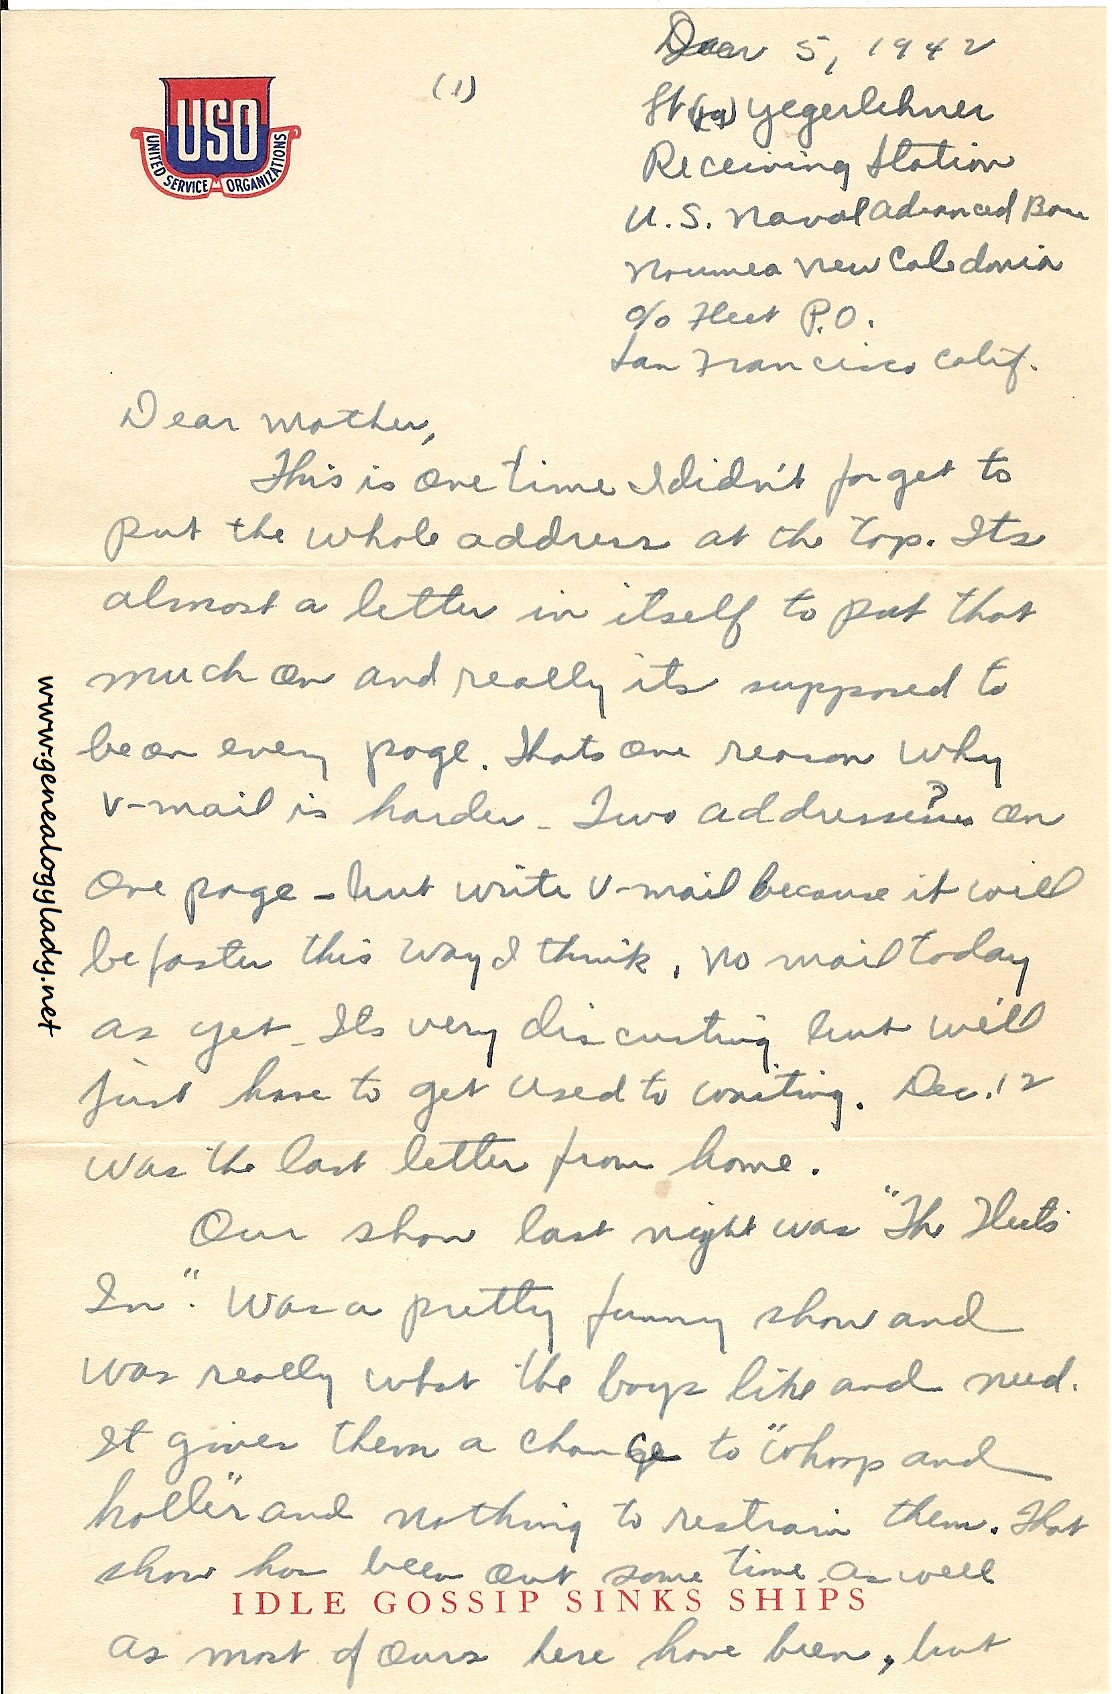 USO
UNITED SERVICE ORGANIZATIONS
(1)
5, 1942
Lt (jg) Yegerlehner
Receiving Station
U.S. Naval Advanced Base
Noumea New Caledonia
c/o Fleet P.O.
San Francisco Calif.
Dear Mother,
This is one time I didn't forget to
put the whole address at the top. Its
almost a letter in itself to put that
much on and really its supposed to
be on every page. Thats one reason why
V-mail is harder - Two addresses? on
one page - but write V-mail because it will
be faster this way I think. No mail today
as yet - Its very discusting but we'll
just have to get used to waiting. Dec. 12
was the last letter from home.
Our show last night was "The Fleets
In". Was a pretty funny show and
was really what the boys like and need.
It gives them a chance to "whoop and
holler" and nothing to restrain them. That
show has been out some time as well
IDLE GOSSIP SINKS SHIPS
as most of ours here have been, but
www.genealogylady.net